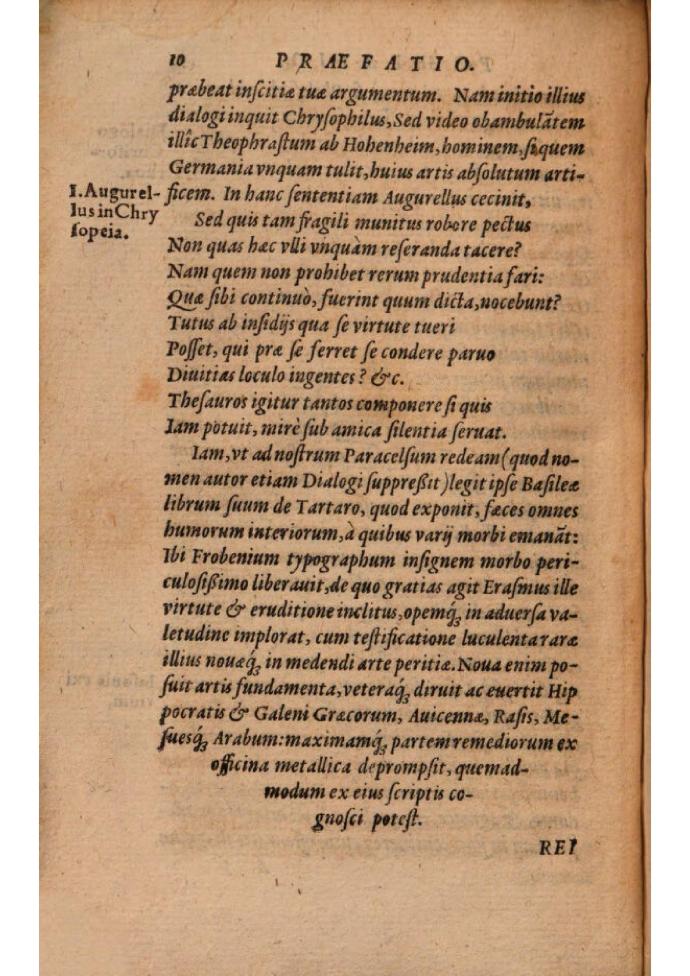 10 PRÆFATIO.
præbeat inſcitiæ tuæ argumentum. Nam initio illius
dialogi inquit Chryſophilus, Sed video obambulātem
illîc Theophraſtum ab Hohenheim, hominem, ſi quem
Germania vnquam tulit, huius artis abſolutum arti-
I. Augurel-
lus in Chry
ſopeia.
ficem. In hanc ſententiam Augurellus cecinit,
Sed quis tam fragili munitus robore pectus
Non quas hæc vlli vnquàm reſeranda tacere?
Nam quem non prohibet rerum prudentia fari:
Quæ ſibi continuò, fuerint quum dicta, nocebunt?
Tutus ab inſidijs qua ſe virtute tueri
Poſſet, qui præ ſe ferret ſe condere paruo
Diuitias loculo ingentes? &c.
Theſauros igitur tantos componere ſi quis
Iam potuit, mirè ſub amica ſilentia ſeruat.
Iam, vt ad noſtrum Paracelſum redeam (quod no-
men autor etiam Dialogi ſuppreßit) legit ipſe Baſileæ
librum ſuum de Tartaro, quod exponit, fæces omnes
humorum interiorum, à quibus varij morbi emanāt:
Ibi Frobenium typographum inſignem morbo peri-
culoſißimo liberauit, de quo gratias agit Eraſmus ille
virtute & eruditione inclitus, opemq́; in aduerſa va-
letudine implorat, cum teſtificatione luculenta raræ
illius nouæq́; in medendi arte peritiæ. Noua enim po-
ſuit artis fundamenta, veteraq́; diruit ac euertit Hip
pocratis & Galeni Græcorum, Auicennæ, Raſis, Me-
ſuesq́; Arabum: maximamq́; partem remediorum ex
officina metallica deprompſit, quemad-
modum ex eius ſcriptis co-
gnoſci poteſt.
REI